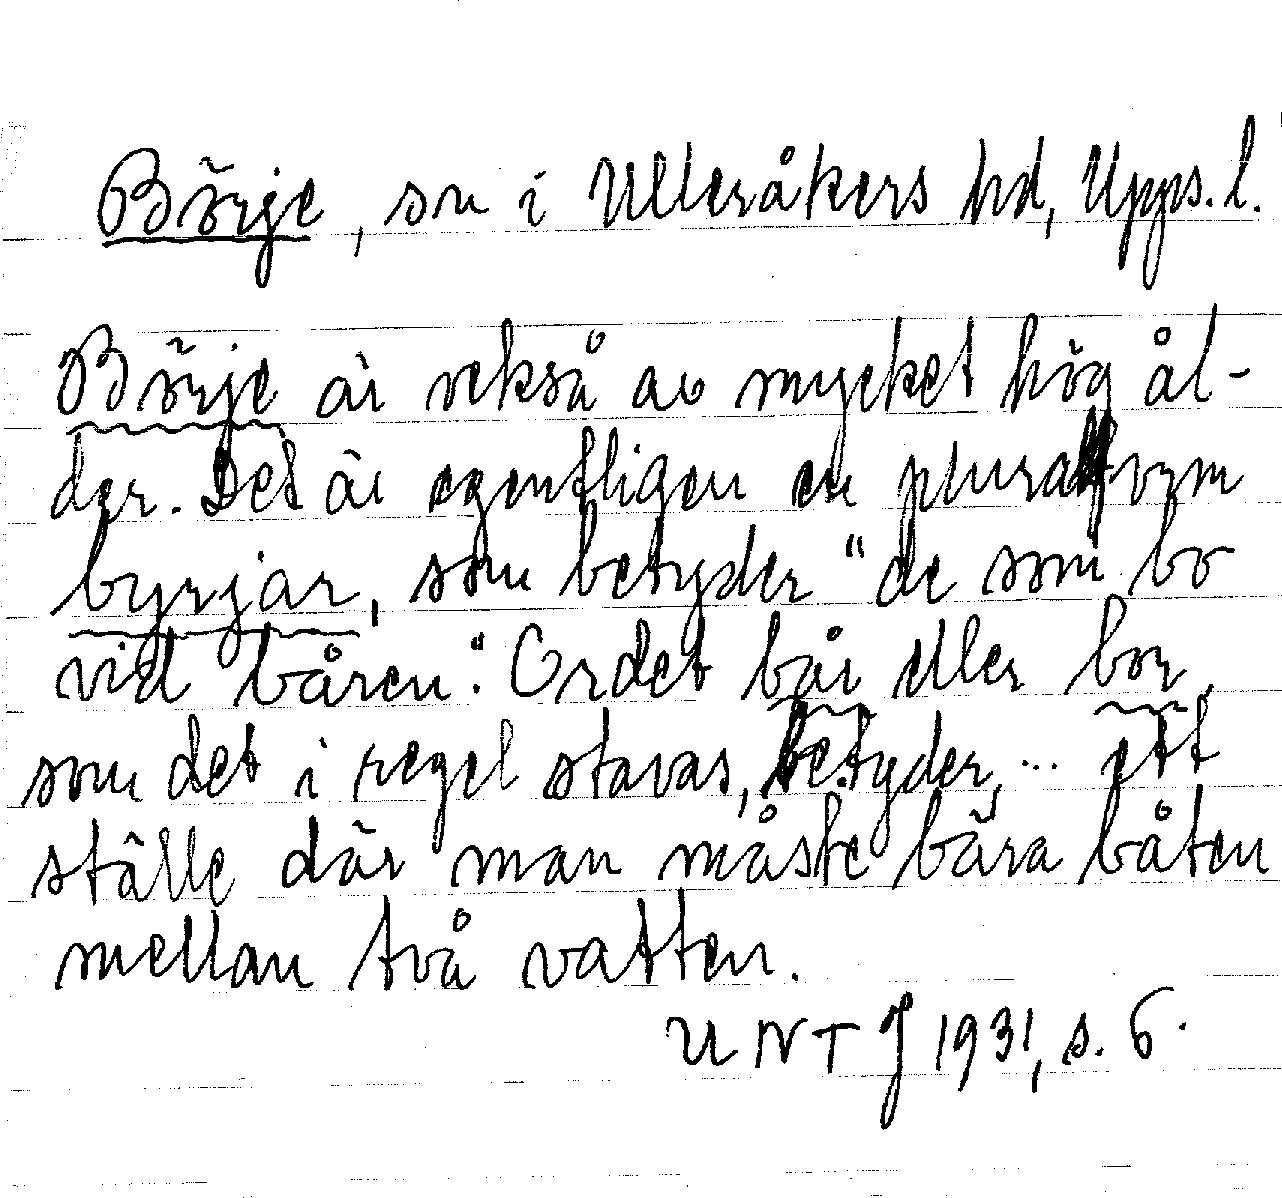 Börje, sn i Ulleråkers hd, Upps. l.
Börje är också av mycket hög ål-
der. Det är egentligen en pluralform
byrjar, som betyder "de som bo
vid båren". Ordet bår eller bor,
som det i regel stavas, betyder, ... ett
ställe där man måste bära båten
mellan två vatten.
UNTJ 1931, s. 6.